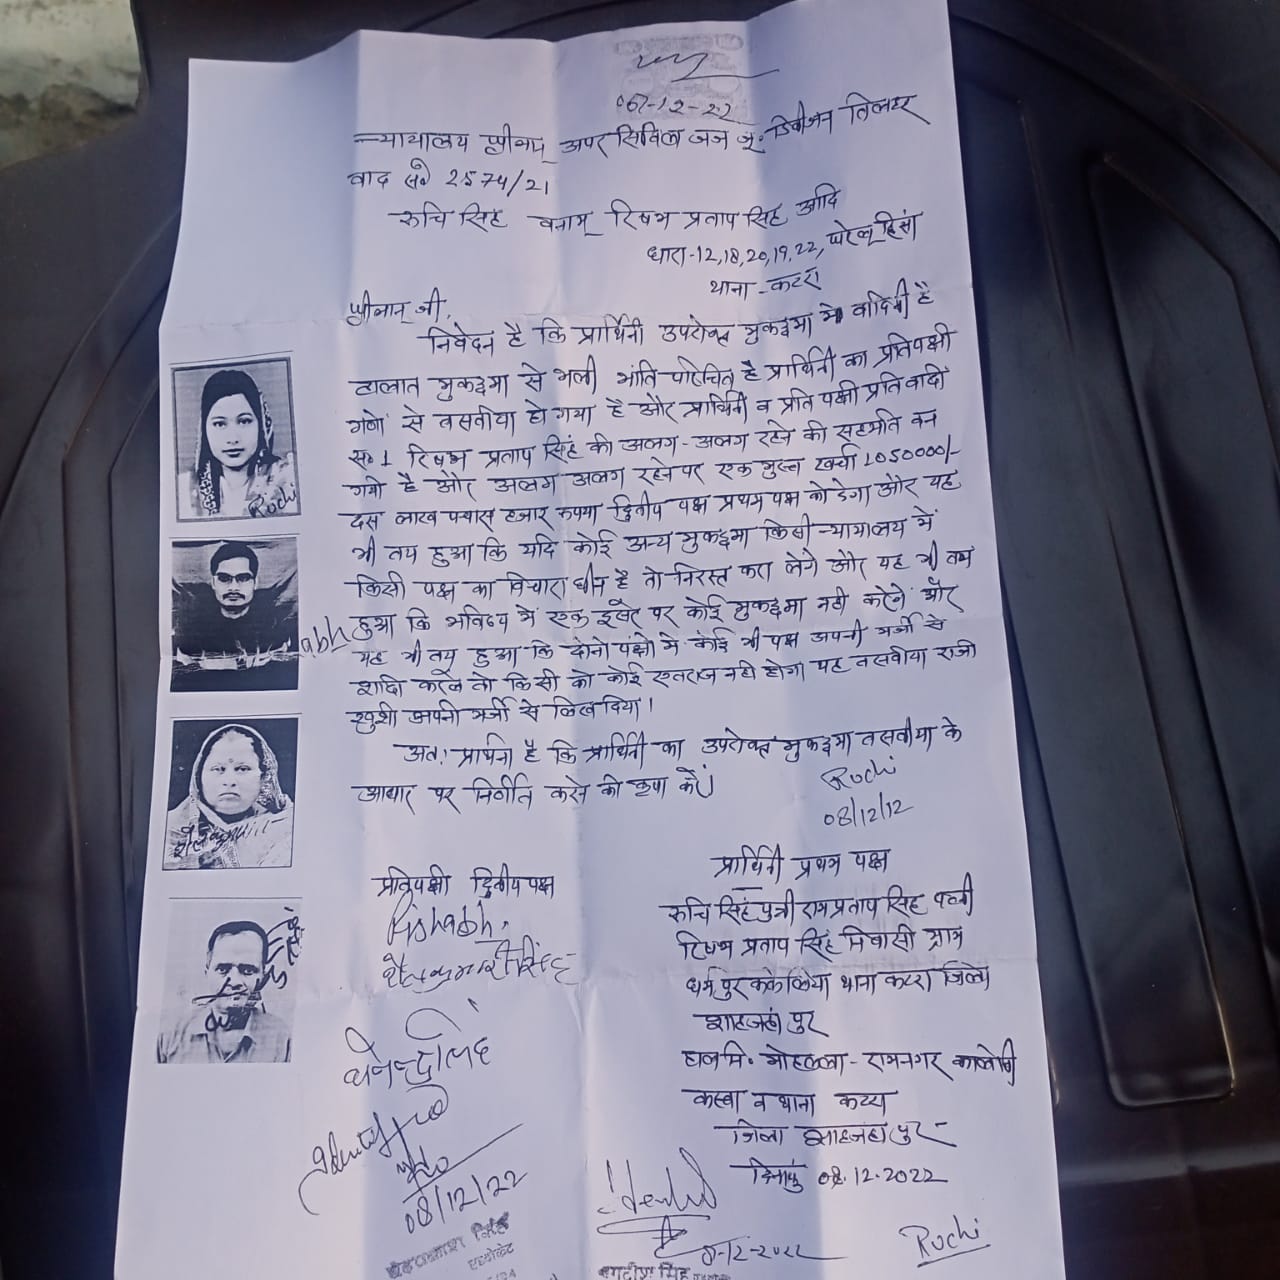 08-12-22
न्यायालय श्रीमान् अपर सिविल जज जू. डिवीजन तिलहर
वाद सं० 2574/21
रुचि सिंह बनाम् रिषभ प्रताप सिंह आदि
धारा-12,18,20,19,22, घरेलू हिंसा
थाना - कटरा
श्रीमान् जी,
निवेदन है कि प्रार्थिनी उपरोक्त मुकदमा मे वादिनी है
हालात मुकदमा से भली भांति परिचित है प्रार्थिनी का प्रतिपक्षी
गणो से तसवीया हो गया है और प्रार्थिनी व प्रतिपक्षी प्रतिवादी
सं० 1 रिषभ प्रताप सिंह की अलग-अलग रहने की सहमति बन
गयी है और अलग अलग रहने पर एक मुस्त खर्चा 1050000/-
दस लाख पचास हजार रुपया द्वितीय पक्ष प्रथम पक्ष को देगा और यह
भी तय हुआ कि यदि कोई अन्य मुकदमा किसी न्यायालय में
किसी पक्ष का विचाराधीन है तो निरस्त करा लेगे और यह भी तय
हुआ कि भविष्य मे एक दूसरे पर कोई मुकदमा नही करेगे और
यह भी तय हुआ कि दोनो पक्षो मे कोई भी पक्ष अपनी मर्जी से
शादी करले तो किसी को कोई एतराज नही होगा यह तसवीया राजी
खुशी अपनी मर्जी से लिख दिया।
अतः प्रार्थना है कि प्रार्थिनी का उपरोक्त मुकदमा तसवीया के
आधार पर निर्णीत करने की कृपा करें।
Ruchi
08/12/12
Ruchi
abh
प्रतिपक्षी द्वितीय पक्ष
Rishabh
शैलकुमारी सिंह
प्रार्थिनी प्रथम पक्ष
रुचि सिंह पुत्री राम प्रताप सिंह पत्नी
रिषभ प्रताप सिंह निवासी ग्राम
धर्मपुर थाना कटरा जिला
शाहजहांपुर
हाल नि० मोहल्ला - रामनगर कालोनी
कस्बा व थाना कटरा
जिला शाहजहांपुर
दिनांक 08.12.2022
08/12/22
8-12-2022
Ruchi
एडवोकेट
जगदीश सिंह